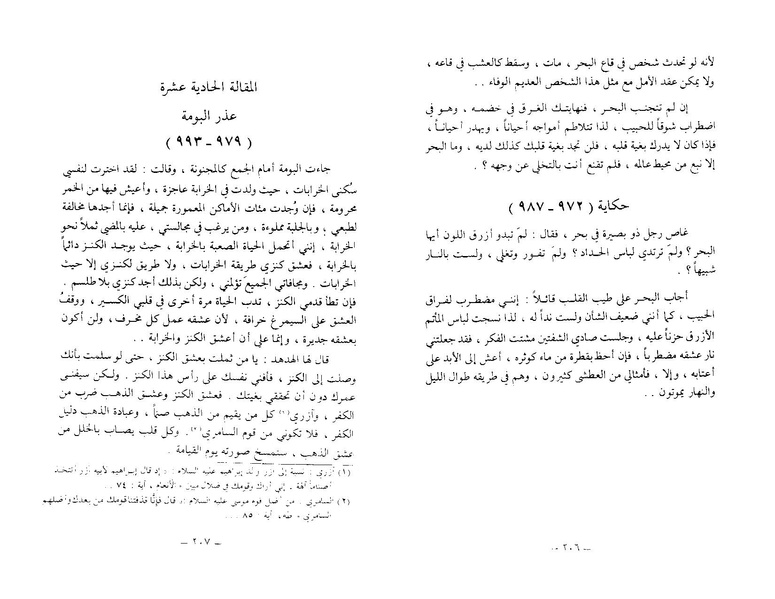 لأنه لو تحدث شخص في قاع البحر ، مات ، وسقط كالعشب في قاعه ،
ولا يمكن عقد الأمل مع مثل هذا الشخص العديم الوفاء . .
إن لم تتجنب البحر ، فنهايتك الغرق في خضمه ، وهو في
اضطراب شوقاً للحبيب ، لذا تتلاطم أمواجه أحياناً ، ويهدر أحياناً ،
فإذا كان لا يدرك بغية قلبه ، فلن تجد بغية قلبك كذلك لديه ، وما البحر
إلا نبع من محيط عالمه ، فلم تقنع أنت بالتخلي عن وجهه ؟ .
حكاية ( ٩٧٢ ـ ٩٨٧ )
غاص رجل ذو بصيرة في بحر ، فقال : لمَ تبدو أزرق اللون أيها
البحر ؟ ولمَ ترتدي لباس الحداد ؟ ولمَ تفور وتغلي ، ولست بالنار
شبيهاً ؟ .
أجاب البحر على طيب القلب قائلاً : إنني مضطرب لفراق
الحبيب ، كما أنني ضعيف الشأن ولست نداً له ، لذا نسجت لباس المأتم
الأزرق حزناً عليه ، وجلست صادي الشفتين مشتت الفكر ، فقد جعلتني
نار عشقه مضطرباً ، فإن أحظ بقطرة من ماء كوثره ، أعش إلى الأبد على
أعتابه ، وإلا ، فأمثالي من العطشى كثيرون ، وهم في طريقه طوال الليل
والنهار يموتون . .
ـ ٢٠٦ ـ
المقالة الحادية عشرة
عذر البومة
( ٩٧٩ ـ ٩٩٣ )
جاءت البومة أمام الجمع كالمجنونة ، وقالت : لقد اخترت لنفسي
سُكنى الخرابات ، حيث ولدت في الخرابة عاجزة ، وأعيش فيها من الخمر
محرومة ، فإن وُجدت مئات الأماكن المعمورة جميلة ، فإنما أجدها مخالفة
لطبعي ، وبالجلبة مملوءة ، ومن يرغب في مجالستي ، عليه بالمضي ثملاً نحو
الخرابة ، إنني أتحمل الحياة الصعبة بالخرابة ، حيث يوجد الكنز دائماً
بالخرابة ، فعشق كنزي طريقه الخرابات ، ولا طريق لكنزي إلا حيث
الخرابات . ومجافاتي الجميعَ تؤلمني ، ولكن بذلك أجد كنزي بلا طلسم .
فإن تطأ قدمي الكنز ، تدب الحياة مرة أخرى في قلبي الكسير ، ووقفُ
العشق على السيمرغ خرافة ، لأن عشقه عمل كل مخرف ، ولن أكون
بعشقه جديرة ، وإنما على أن أعشق الكنز والخرابة . .
قال لها الهدهد : يا من ثملت بعشق الكنز ، حتى لو سلمت بأنك
وصلت إلى الكنز ، فأفني نفسك على رأس هذا الكنز . ولكن سيفنى
عمرك دون أن تحققي بغيتك . فعشق الكنز وعشق الذهب ضرب من
الكفر ، وأزري(١) كل من يقيم من الذهب صنماً ، وعبادة الذهب دليل
الكفر ، فلا تكوني من قوم السامري(٢) . وكل قلب يصاب بالخلل من
عشق الذهب ، ستمسخ صورته يوم القيامة .
(١) أزري : نسبة إلى آزر والد إبراهيم عليه السلام : « إذ قال إبراهيم لأبيه آزر أتتخذ
أصناماً آلهة . إني أراك وقومك في ضلال مبين » الأنعام ، آية : ٧٤ . .
(٢) السامري . من أضل قوم موسى عليه السلام : قال فإنا قد فتنا قومك من بعدك وأضلهم
السامري » طه ، آية : ٨٥ . . .
ـ ٢٠٧ ـ